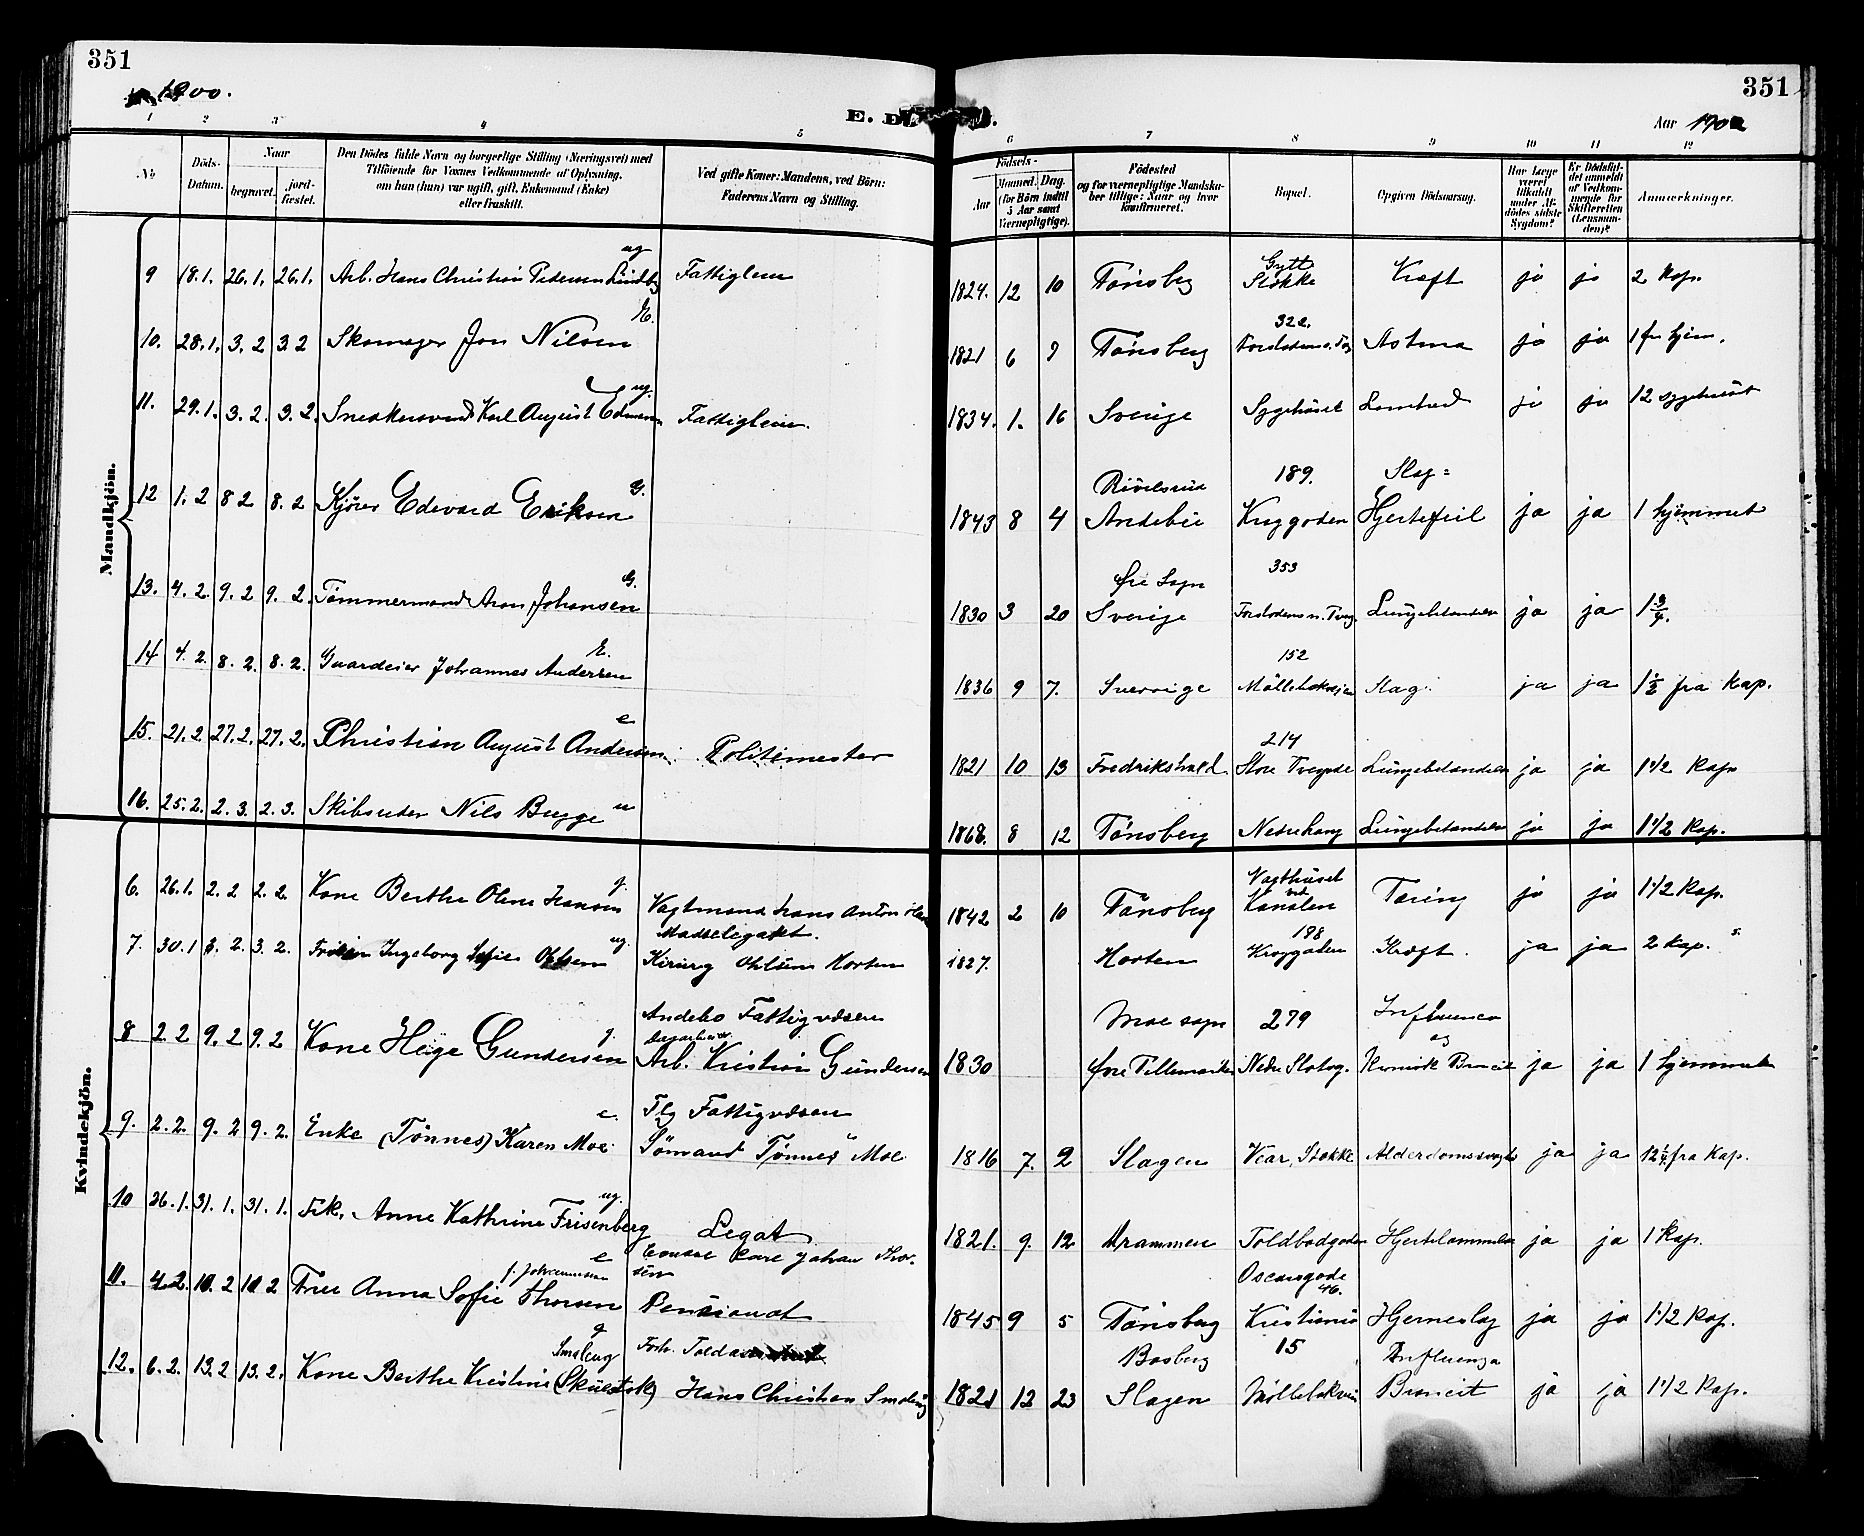 351
1900.
351
Aar 1900
E. D
1 2 3 4 5 6 7 8 9 10 11 12
No
Döds-Datum.
Naar
begravet.
jord-fæstet.
Den Dödes fulde Navn og borgerlige Stilling (Næringsvei) med
Tilföiende for Voxnes Vedkommende af Oplysning,
om han (hun) var ugift, gift, Enkemand (Enke)
eller fraskilt.
Ved gifte Koner: Mandens, ved Börn:
Faderens Navn og Stilling.
Födsels-
Aar
Maaned. Dag.
(for Börn indtil
5 Aar samt
Værnepligtige).
Födested
og for værnepligtige Mandska-
ber tillige: Naar og hvor
konfirmeret.
Bopæl.
Opgiven Dödsaarsag.
Har Læge
været
tilkaldt
under Af-
dödes sidste
Sygdom?
Er Dödsfal-
det anmeldt
af Vedkom-
mende for
Skifteretten
(Lensman-
den)?
Anmærkninger.
Mandkjön.
9 18.1. 26.1. 26.1. Arb. Hans Christian Pedersen Lindby ug Fattiglem 1824. 12 10 Tönsberg Gytte Stokke Kræft ja ja 2 Kap.
10. 28.1. 3. 2 3 2 Skomager Jon Nilsen E. 1821 6 9 Tönsberg 322. Astma ja ja 1 fr hjem.
11. 29.1. 3. 2. 3. 2. Snedkersvend Karl August Edman ug. Fattiglem. 1834. 1. 16 Sverige Sygehuset Lamhed ja ja 12 sygehuset
12 1. 2 8 2 8. 2 Kjörer Edevard Eriksen G. 1843 8 4 Andebu 189. Kryggaden Slag= Hjertefeil ja ja 1 hjemmet
13. 4. 2. 9. 2 9. 2. Tömmermand Aron Johansen G. 1830 3 20 Sverige 353 Lungebetændelse ja ja 1 3/4.
14 4. 2. 8. 2. 8. 2. Gaardeier Johannes Andersen E. 1836 9 7. Sverrige 152 Möllebakveien Slag. ja ja 1 1/2 fra Kap.
15. 21. 2 27. 2. 27. 2. Christian August Andersen e Politimester 1821 10 13 Fredrikshald 214 Store Tvergade Lungebetændelse ja ja 1 1/2 Kap
16. 25. 2. 2. 3. 2. 3. Skibsreder Nils Bugge u 1868. 8 12 Tönsberg Nedrehaug Lungebetændelse ja ja 1 1/2 Kap.
Kvindekjön.
6. 26.1. 2. 2 2. 2. Kone Berthe Oline Hansen g. Vagtmand Hans Anton 1842 2 10 Tönsberg Vagthuset ved Kanalen Tæring ja ja 1 1/2 Kap.
7. 30.1 3. 2. 3. 2. Fröken Ingeborg Sofie Ohlsen ug. Madselegatet. Kirurg Ohlsen Horten 1827. Horten 198 Kryggaden Kræft. ja ja 2 Kap.
8 2 2 9. 2 9. 2 Kone Helge Gundersen g. Andebo Fattigvæsen Dagarbeider Arb. Kristian Gundersen 1830 Moe sogn Øvre Tillemarken 279 Nedre Slotsg. Influenca og Kronisk Broncit ja ja 1 hjemmet
9. 2. 2. 9. 2 9. 2. Enke (Tönnes) Karen Moe e. Tbg Fattigvæsen Sömand Tönnes Moe 1816 7. 2 Slagen Vear, Stokke Alderdomssvaghed ja ja 12 1/4 fra Kap.
10 26. 1. 31. 1. 31. 1. Frk. Anne Kathrine Frisenberg ug. Legat 1821. 9. 12 Drammen Toldbodgaden Hjertelammelse ja ja 1 Kap.
11. 4. 2. 10. 2 10 2 Frue Anna Sofie Thorsen f. Johannesen e Enke Kare Johan Thorsen Pensionat 1845 9 5 Tönsberg Oscarsgade 46. Kristiania Hjerneslag ja ja 1 1/2 Kap.
12. 6. 2. 13. 2 13. 2. Kone Berthe Kristine Smaleng (Skulstok) g Forh. Hans Christian Smaleng 1821 12 23 Basberg Slagen 15 Möllebakveien Influenza Broncit ja ja 1 1/2 Kap.